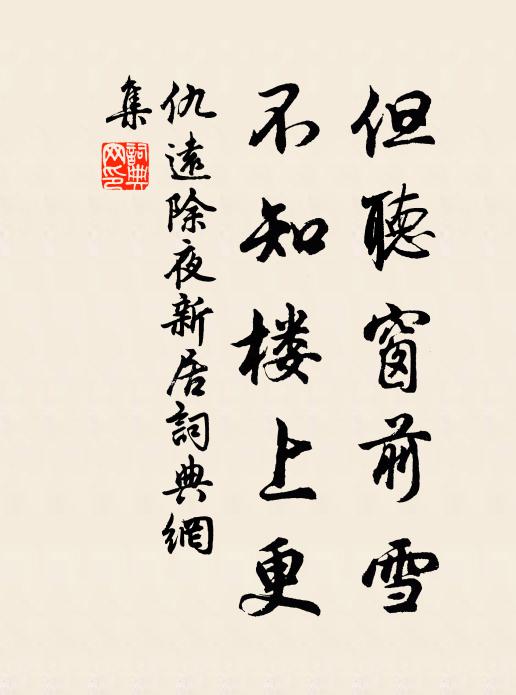 但聽窗前雪
不知楼上更
仇遠除夜新居詞典網
集
詞典
网印